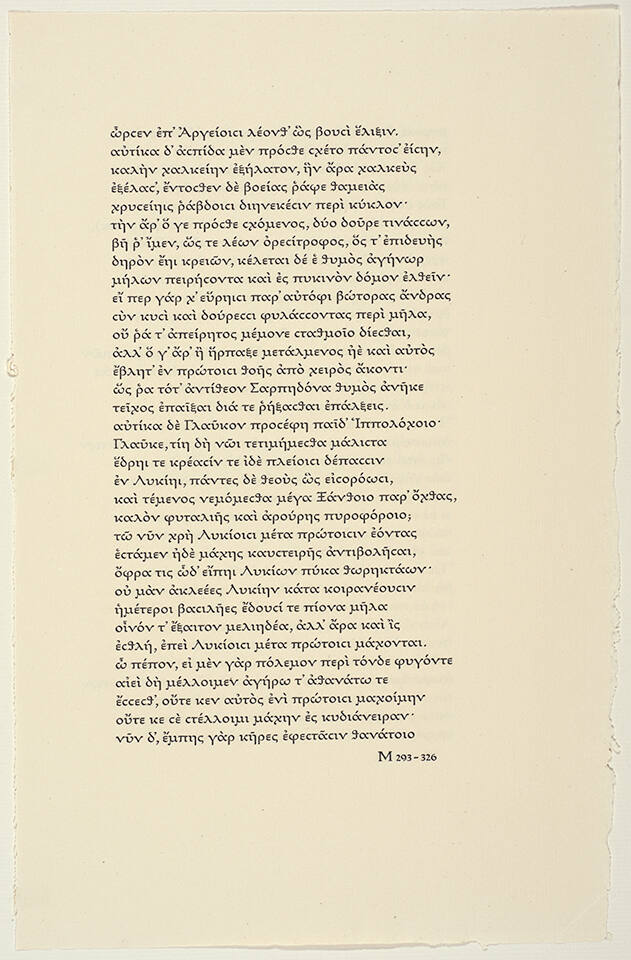 ὦρϲεν ἐπ' Ἀργείοιϲι λέονθ' ὣϲ βουϲὶ ἕλιξιν.
αὐτίκα δ' ἀϲπίδα μὲν πρόϲθε ϲχέτο πάντοϲ' ἐίϲην,
καλὴν χαλκείην ἐξήλατον, ἣν ἄρα χαλκεὺς
ἐξέλαϲ', ἔντοϲθεν δὲ βοείας ῥάψε θαμειὰς
χρυϲείηις ῥάβδοιϲι διηνεκέϲιν περὶ κύκλον·
τὴν ἄρ' ὅ γε πρόϲθε ϲχόμενος, δύο δοῦρε τινάϲϲων,
βῆ ῥ' ἴμεν, ὥς τε λέων ὀρεϲίτροφος, ὅς τ' ἐπιδευὴς
δηρὸν ἔηι κρειῶν, κέλεται δέ ἑ θυμὸς ἀγήνωρ
μήλων πειρήϲοντα καὶ ἐς πυκινὸν δόμον ἐλθεῖν·
εἴ περ γάρ χ' εὕρηιϲι παρ' αὐτόφι βώτορας ἄνδρας
ϲὺν κυϲὶ καὶ δούρεϲϲι φυλάϲϲοντας περὶ μῆλα,
οὔ ῥά τ' ἀπείρητος μέμονε ϲταθμοῖο δίεϲθαι,
ἀλλ' ὅ γ' ἄρ' ἢ ἥρπαξε μετάλμενος ἠὲ καὶ αὐτὸς
ἔβλητ' ἐν πρώτοιϲι θοῆς ἀπὸ χειρὸς ἄκοντι·
ὥς ῥα τότ' ἀντίθεον Σαρπηδόνα θυμὸς ἀνῆκε
τεῖχος ἐπαῖξαι διά τε ῥήξαϲθαι ἐπάλξεις.
αὐτίκα δὲ Γλαῦκον προϲέφη παῖδ' Ἱππολόχοιο·
Γλαῦκε, τίη δὴ νῶι τετιμήμεϲθα μάλιϲτα
ἕδρηι τε κρέαϲίν τε ἰδὲ πλείοιϲι δέπαϲϲιν
ἐν Λυκίηι, πάντες δὲ θεοὺς ὣς εἰϲορόωϲι,
καὶ τέμενος νεμόμεϲθα μέγα Ξάνθοιο παρ' ὄχθας,
καλὸν φυταλιῆς καὶ ἀρούρης πυροφόροιο;
τῶ νῦν χρὴ Λυκίοιϲι μέτα πρώτοιϲιν ἐόντας
ἑϲτάμεν ἠδὲ μάχης καυϲτειρῆς ἀντιβολῆϲαι,
ὄφρα τις ὧδ' εἴπηι Λυκίων πύκα θωρηκτάων·
οὐ μὰν ἀκλεέες Λυκίην κάτα κοιρανέουϲιν
ἡμέτεροι βαϲιλῆες ἔδουϲί τε πίονα μῆλα
οἶνόν τ' ἔξαιτον μελιηδέα, ἀλλ' ἄρα καὶ ἲς
ἐϲθλή, ἐπεὶ Λυκίοιϲι μέτα πρώτοιϲι μάχονται.
ὦ πέπον, εἰ μὲν γὰρ πόλεμον περὶ τόνδε φυγόντε
αἰεὶ δὴ μέλλοιμεν ἀγήρω τ' ἀθανάτω τε
ἔϲϲεϲθ', οὔτε κεν αὐτὸς ἐνὶ πρώτοιϲι μαχοίμην
οὔτε κε ϲὲ ϲτέλλοιμι μάχην ἐς κυδιάνειραν·
νῦν δ', ἔμπης γὰρ κῆρες ἐφεϲτᾶϲιν θανάτοιο
Μ 293-326